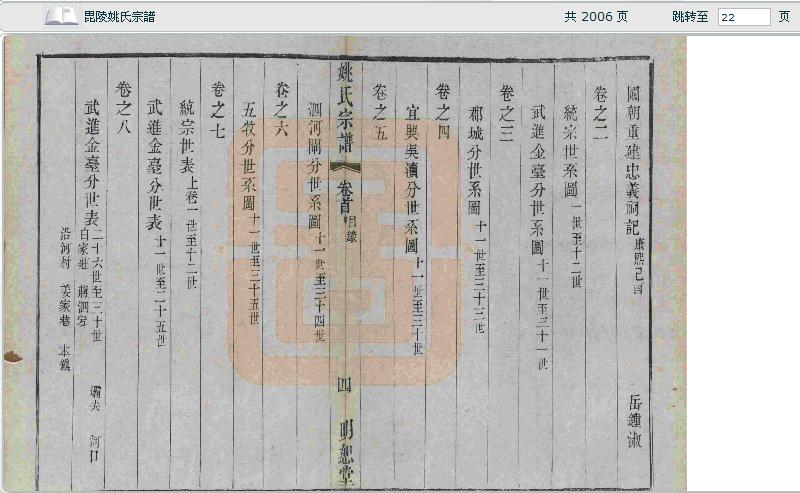 毘陵姚氏宗譜
共 2006 页
跳转至 22 页
國朝重建忠義祠記 康熙己酉 岳鍾淑
卷之二
統宗世系圖 一世至十二世
武進金臺分世系圖 十一世至三十一世
卷之三
郡城分世系圖 十一世至三十三世
卷之四
宜興吳瀆分世系圖 十一世至三十世
卷之五
姚氏宗譜 卷首 目錄 四 明恕堂
泗河閘分世系圖 十一世至三十四世
卷之六
五牧分世系圖 十一世至三十五世
卷之七
統宗世表 上卷一世至十二世
武進金臺分世表 十一世至二十五世
卷之八
武進金臺分世表 二十六世至三十世
白家莊 蔣泗宕 壩尖 河口
沿河村 姜家巷 本鎮